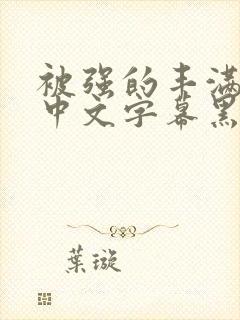 被强的丰满
中文字幕黑
葉璇